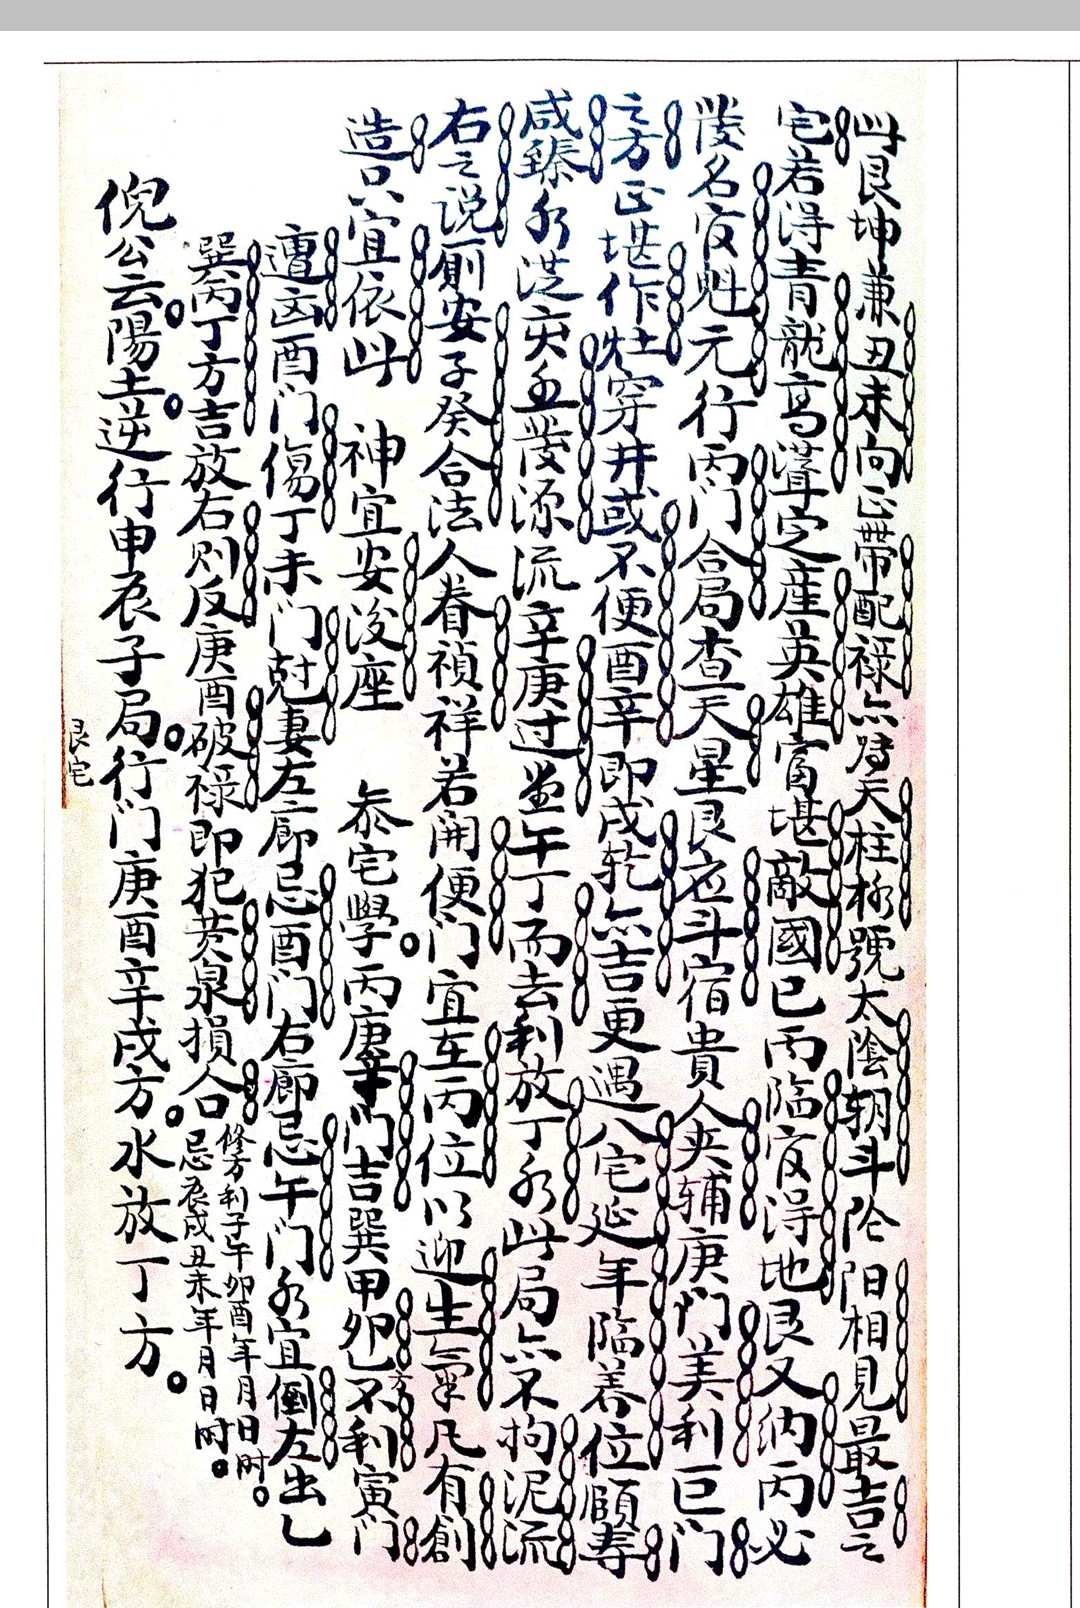 此艮坤兼丑未向正帶配祿亦將天柱極號太陰朝斗阴阳相見最吉之
宅若得青龍高聳定産英雄富堪敵國巳丙臨官得地艮又纳丙必
發名官魁元行丙门合局查天星艮应斗宿貴人夹辅庚门美利巨门
之方正堪作灶穿井或不便酉辛即戌乾亦吉更遇八宅延年臨养位頤寿
咸臻水法亥壬發源流辛庚过堂午丁而去利放丁水此局亦不拘泥流
右之说厠安子癸合法人眷禎祥若開便门宜在丙位以迎生氣凡有創
造只宜依此 神宜安後座 泰宅學丙庚辛门吉巽甲卯乙方不利寅门
遭凶酉门傷丁未门尅妻左廊忌酉门右廊忌午门水宜倒左出乙
巽丙丁方吉放右则反庚酉破祿即犯黄泉損人口
修方利子午卯酉年月日时
忌辰戌丑未年月日时
倪公云陽土逆行申辰子局行门庚酉辛戌方水放丁方
艮宅